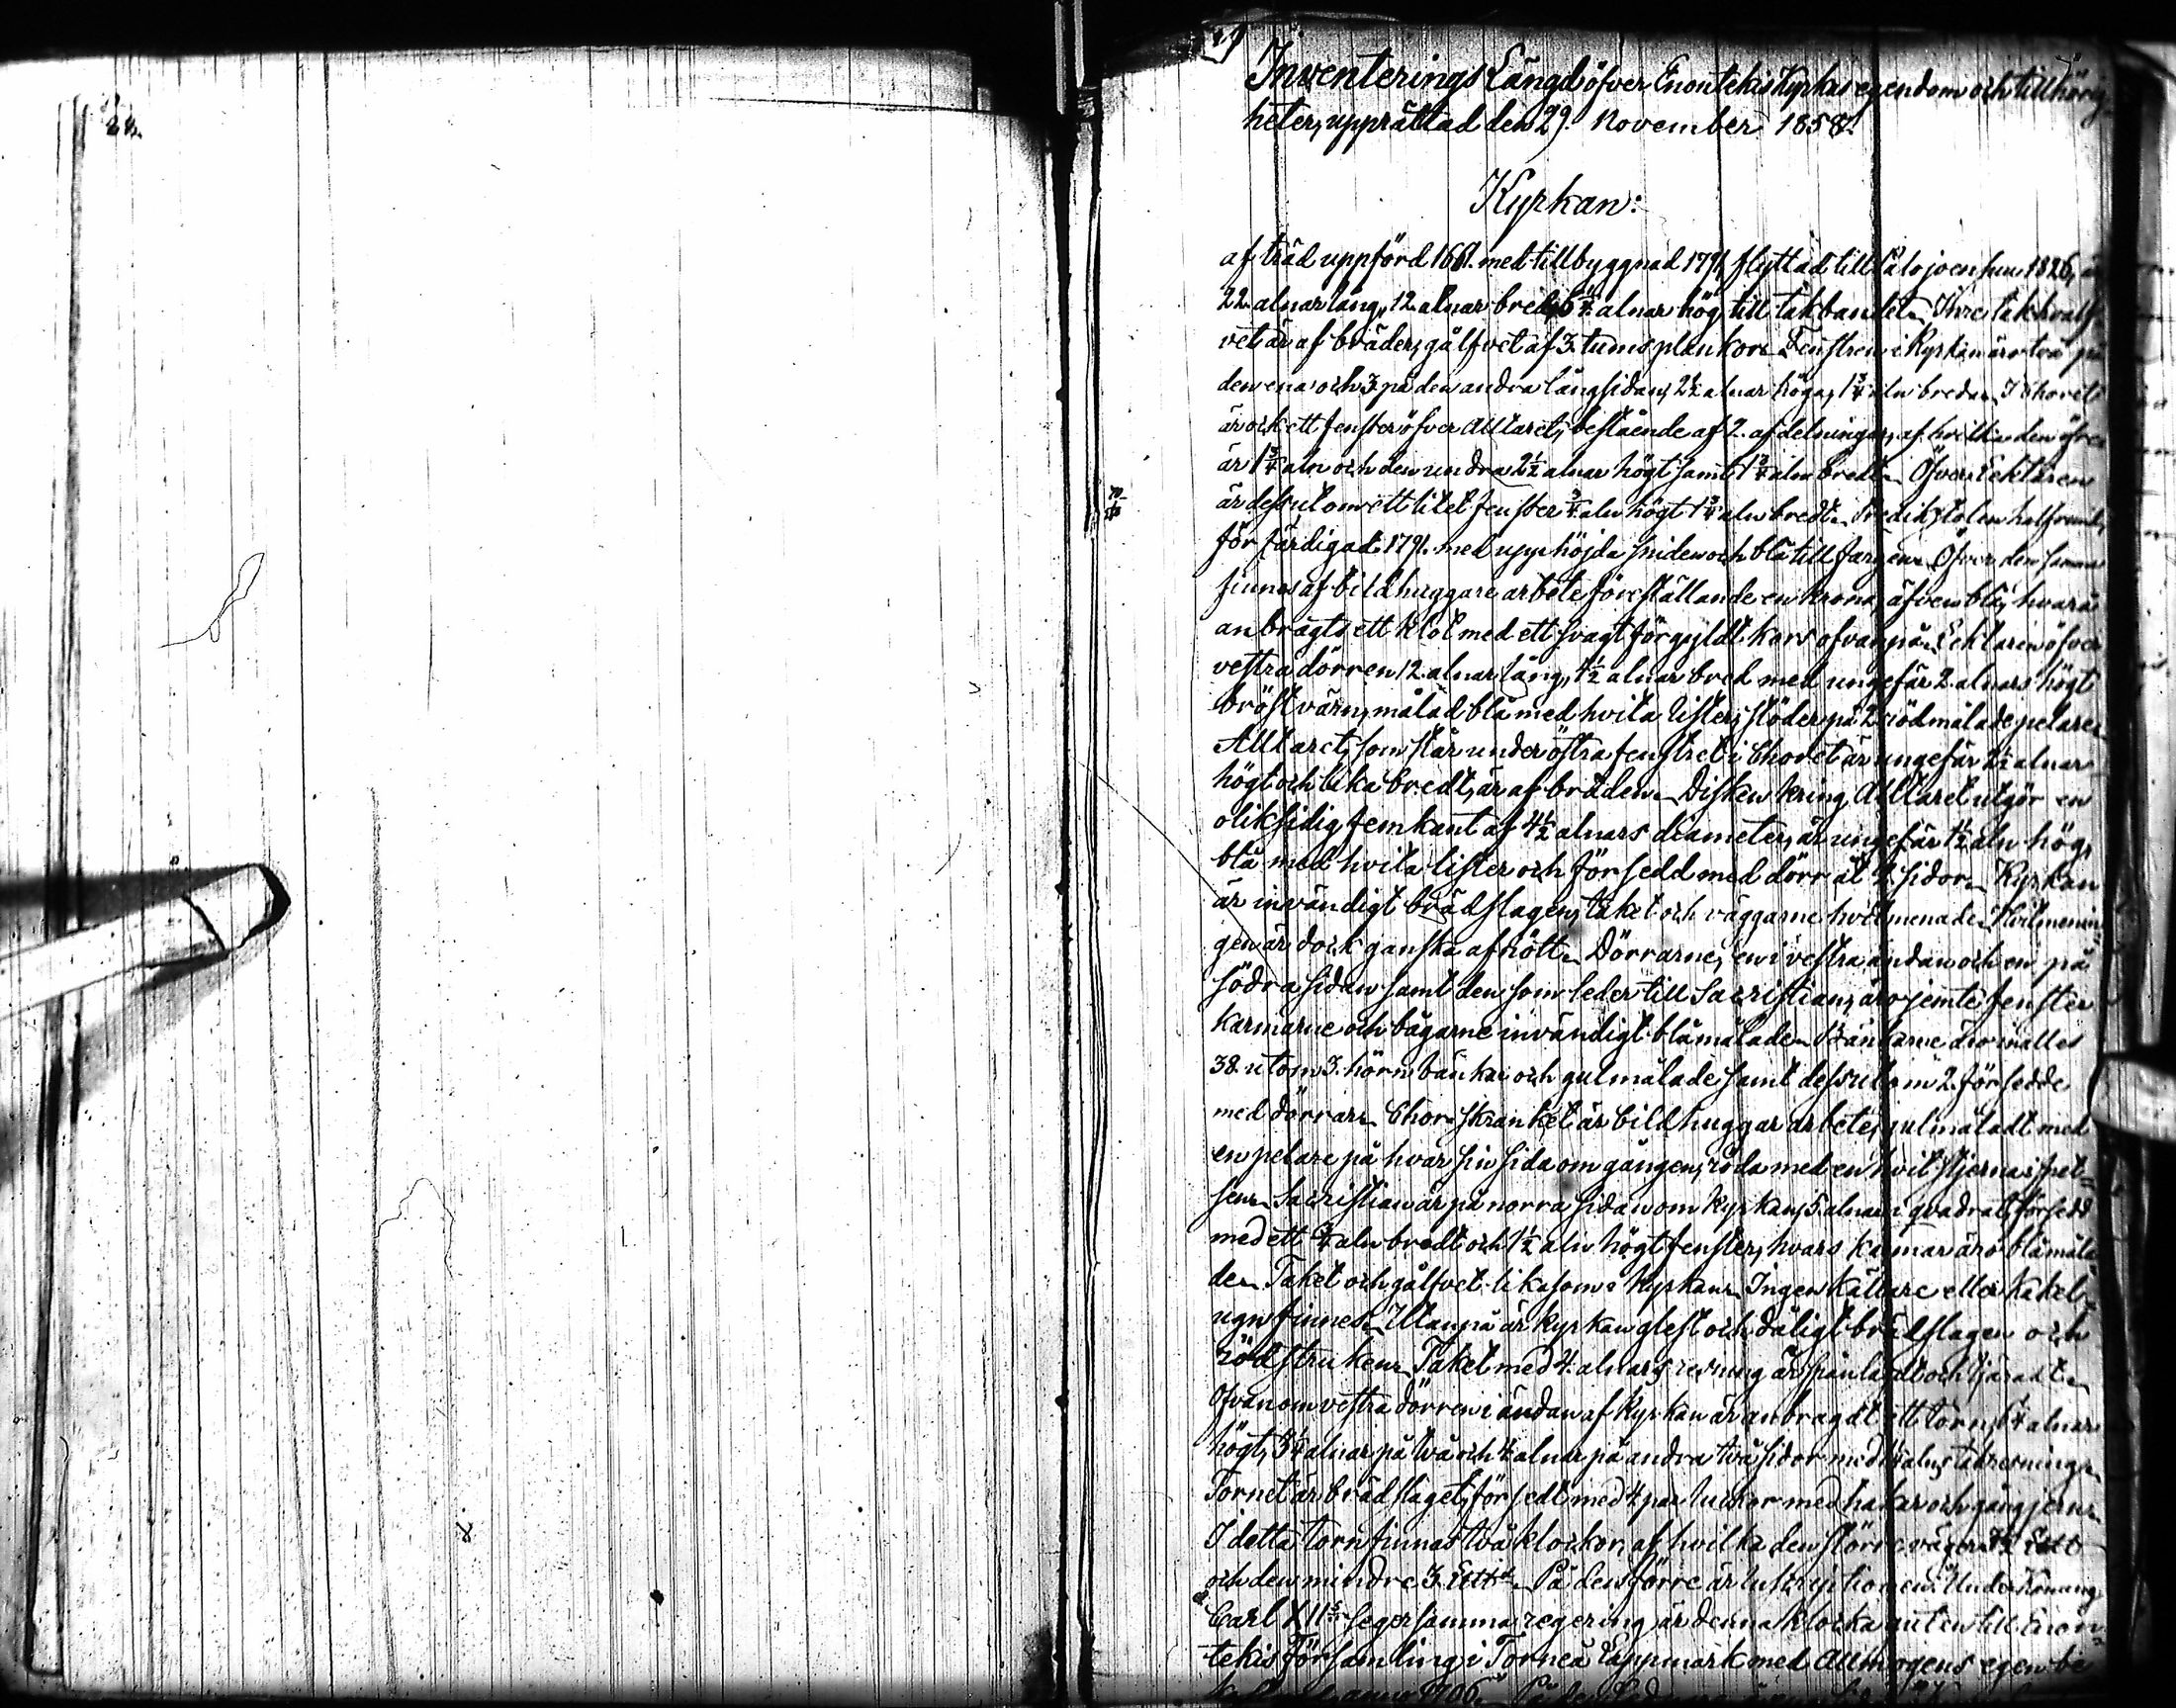 24.
Inventerings Längd öfver Enontekis Kyrkas egendom och tillhörig-
heter, upprättad den 29. November 1858.
Kyrkan:
af träd uppförd 1661. med tillbyggnad 1791 flyttad till Palojoensuu 1826, är
22. alnar lång, 12. alnar bred, alnar hög till takbandet. Inre takhvalf-
vet är af bräder, gålfvet af 3. tums plankor. Fenstren i Kyrkan äro två på
den ena och 3 på den andra långsidan, 2½ alnar höga, 1¾ aln breda. I Choret
är ock ett fenster öfver Altaret, bestående af 2. afdelningar, af hvilka den öfre
är 1¾ aln och den undra 2½ alnar högt samt 1¾ aln bredt. Öfver Lektaren
är dessutom ett litet fenster ¾ aln högt 1¾ aln bredt. Predikstolen halfrund,
förfärdigad 1791. med upphöjda sniden och blå till färgen. Öfver den samma
finnes af bildhuggare arbete föreställande en krona, äfven blå, hvarå
anbragts ett klot med ett svagt förgyldt kors ofvanpå. Lektaren öfver
vestra dörren 12. alnar lång, 4½ alnar bred med ungefär 2. alnars högt
bröstvärn, målad blå med hvita lister, stöder på 2 rödmålade pelare.
Alltaret, som står under östra fenstret i Choret är ungefär 2½ alnar
högt och lika bredt, är af bräden. Disken kring Alltaret utgör en
oliksidig femkant af 4½ alnars diameter, är ungefär 1½ aln hög,
blå med hvita lister och försedd med dörr åt 2 sidor. Kyrkan
är invändigt brädslagen, taket och väggarne hvitmenade. Hvitmenin-
gen är dock ganska afnött. Dörrarne, en i vestra ändan och en på
södra sidan samt den som leder till Sacristian, äro jemte fenster
karmarne och bågarne invändigt blåmålade. Bänkarne äro inalles
38. utom 3. hörnbänkar och gulmålade samt dessutom 2. försedde
med dörrar. Chor-skranket är bildhuggar arbete, gulmåladt med
en pelare på hvar sin sida om gången, röda med en hvit stjerna i spet-
sen. Sacristian är på norra sidan om Kyrkan, 5. alnar i qvadrat, försedd
med ett ¾ aln bredt och 1½ aln högt fenster, hvars karmar äro blåmåla-
de. Taket och gålfvet likasom i Kyrkan. Ingen källare eller Kakel-
ugn finnes. Utanpå är kyrkan glest och dåligt brädslagen och
rödstruken. Taket med 4. alnars resning är spånlagdt och tjäradt.
Ofvanom vestra dörren i ändan af Kyrkan är anbragdt ett torn, alnar
högt, 3¼ alnar på två och 4 alnar på andra två sidor med alns takresning.
Tornet är brädslaget, försedt med 4. par luckor med hakar och gångjern.
I detta torn finnas två klockor, af hvilka den större väger
och den mindre 3. På den förre är inskriptionen: "Under Konung
Carl XII:s segersamma regering är denna klocka guten till Enon-
tekis Församling i Torneå Lappmark med Allmogens egen be
anno 1706.